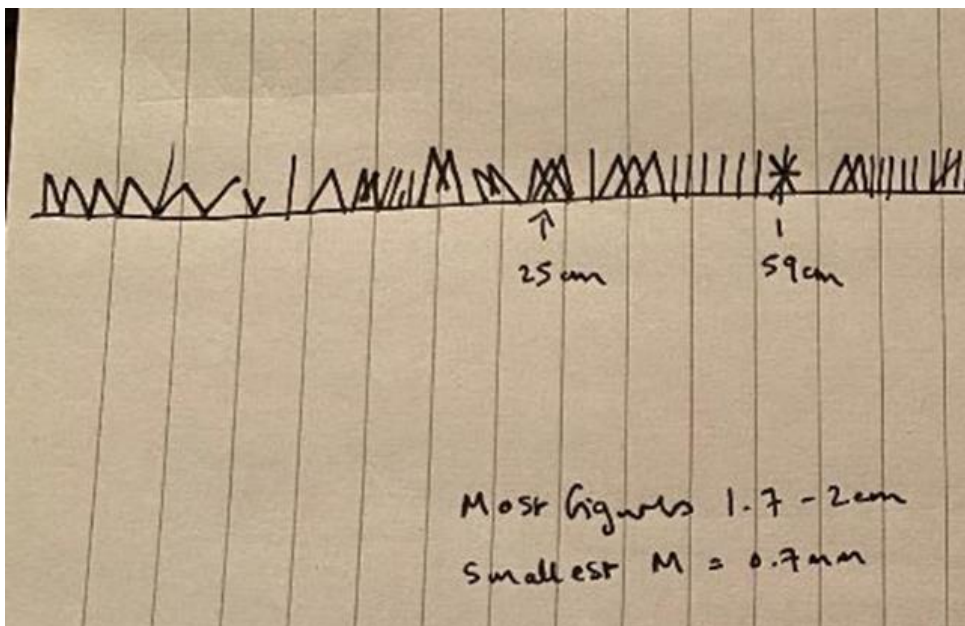 25cm
59cm
Most figures 1.7-2cm
Smallest M = 0.7mm